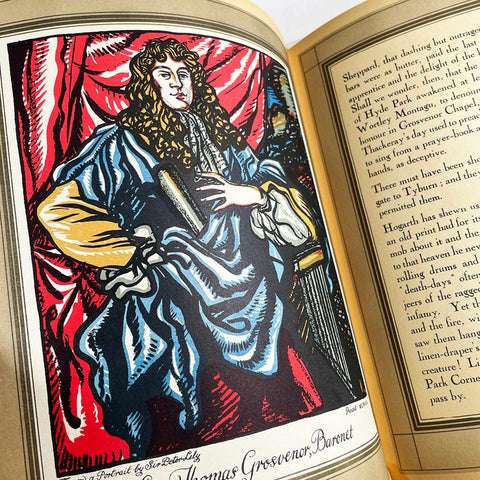 a Portrait by Sir Peter Lely
Thomas Grosvenor, Baronet
Sheppard, that dashing but outrag
bars were as butter, paid the last
apprentice and the delight of the
Shall we wonder, then, that the
of Hyde Park awakened a l
Wortley Montagu, to denou
honour in Grosvenor Chapel,
Thackeray's day used to prea
to sing from a prayer-book a
hands, as deceptive.
There must have been sh
gate to Tyburn; and they
permitted them.
Hogarth has shewn us
an old print had for in
mob about it and the
to that heaven he nev
rolling drums and
"death-days" ofte
jeers of the ragge
infancy. Yet th
and the fire, wi
saw them hang
linen-draper's
creature! Li
Park Corne
pass by.